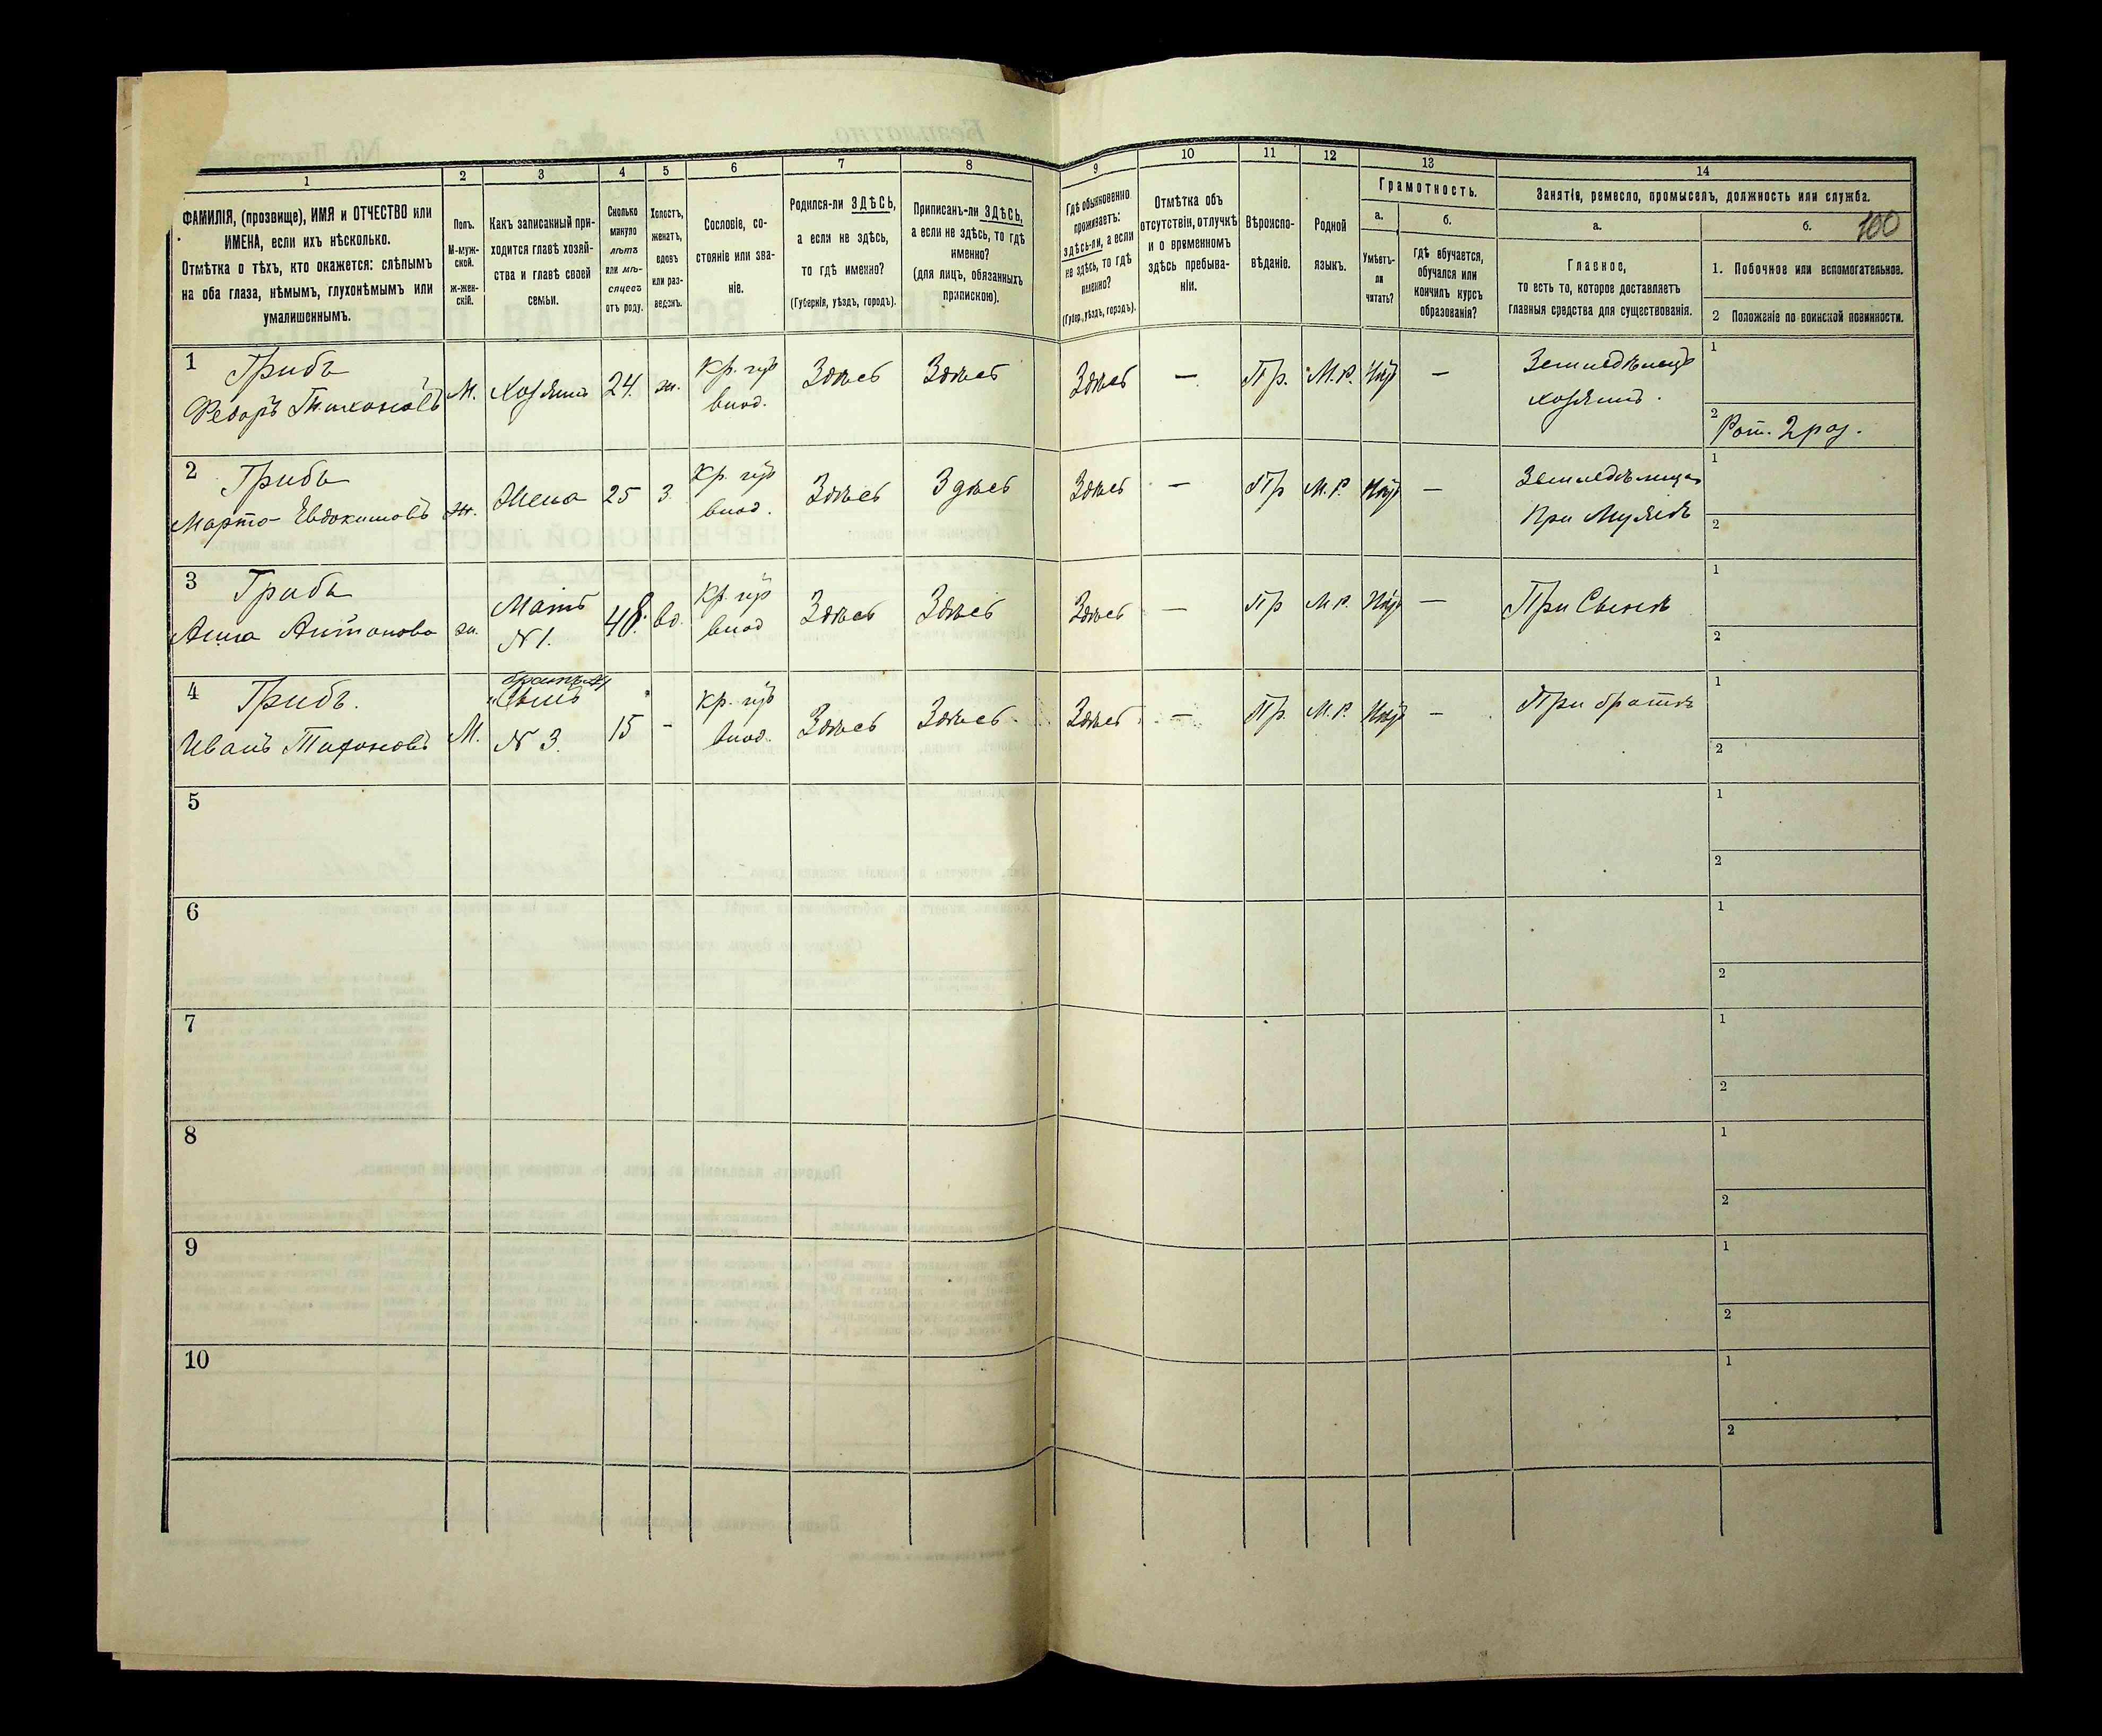 1 2 3 4 5 6 7 8 9 10 11 12 13 14
ФАМИЛІЯ, (прозвище), ИМЯ и ОТЧЕСТВО или
ИМЕНА, если ихъ нѣсколько.
Отмѣтка о тѣхъ, кто окажется: слѣпымъ
на оба глаза, нѣмымъ, глухонѣмымъ или
умалишеннымъ.
Полъ.
М-муж-
ской.
Ж-жен-
скій.
Какъ записанный при-
ходится главѣ хозяй-
ства и главѣ своей
семьи.
Сколько
минуло
лѣтъ
или мѣ-
сяцевъ
отъ роду.
Холостъ,
женатъ,
вдовъ
или раз-
веденъ.
Сословіе, со-
стояніе или зва-
ніе.
Родился-ли ЗДѢСЬ,
а если не здѣсь,
то гдѣ именно?
(Губернія, уѣздъ, городъ).
Приписанъ-ли ЗДѢСЬ,
а если не здѣсь, то гдѣ
именно?
(для лицъ, обязанныхъ
припискою).
Гдѣ обыкновенно
проживаетъ:
здѣсь-ли, а если
не здѣсь, то гдѣ
именно?
(Губер., уѣздъ, городъ).
Отмѣтка объ
отсутствіи, отлучкѣ
и о временномъ
здѣсь пребыва-
ніи.
Вѣроиспо-
вѣданіе.
Родной
языкъ.
Грамотность.
а.
Умѣетъ-
ли
читать?
б.
Гдѣ обучается,
обучался или
кончилъ курсъ
образованія?
Занятіе, ремесло, промыселъ, должность или служба.
а.
Главное,
то есть то, которое доставляетъ
главныя средства для существованія.
б. 100
1. Побочное или вспомогательное.
2 Положеніе по воинской повинности.
1 Грибъ
Федоръ Тихоновъ М. Хозяинъ 24. ж. Кр. влад. Здѣсь Здѣсь Здѣсь — Пр. М.Р. — Земледѣлецъ
хозяинъ.
1
2 Рат. 2 раз.
2 Грибъ
Марта Евдокимовъ ж. Жена 25 З. Кр. влад. Здѣсь Здѣсь Здѣсь — Пр М.Р. — Земледѣлица
При Мужѣ
1
2
3 Грибъ
Анна Антонова ж. Мать
№ 1. 48. вд. Кр. влад Здѣсь Здѣсь Здѣсь — Пр М.Р. — При Сынѣ
1
2
4 Грибъ.
Иванъ Тихоновъ М. братъ №1
Сынъ
№ 3. 15 - Кр. влад. Здѣсь Здѣсь. Здѣсь — Пр. М.Р. — При братѣ
1
2
5
1
2
6
1
2
7
1
2
8
1
2
9
1
2
10
1
2